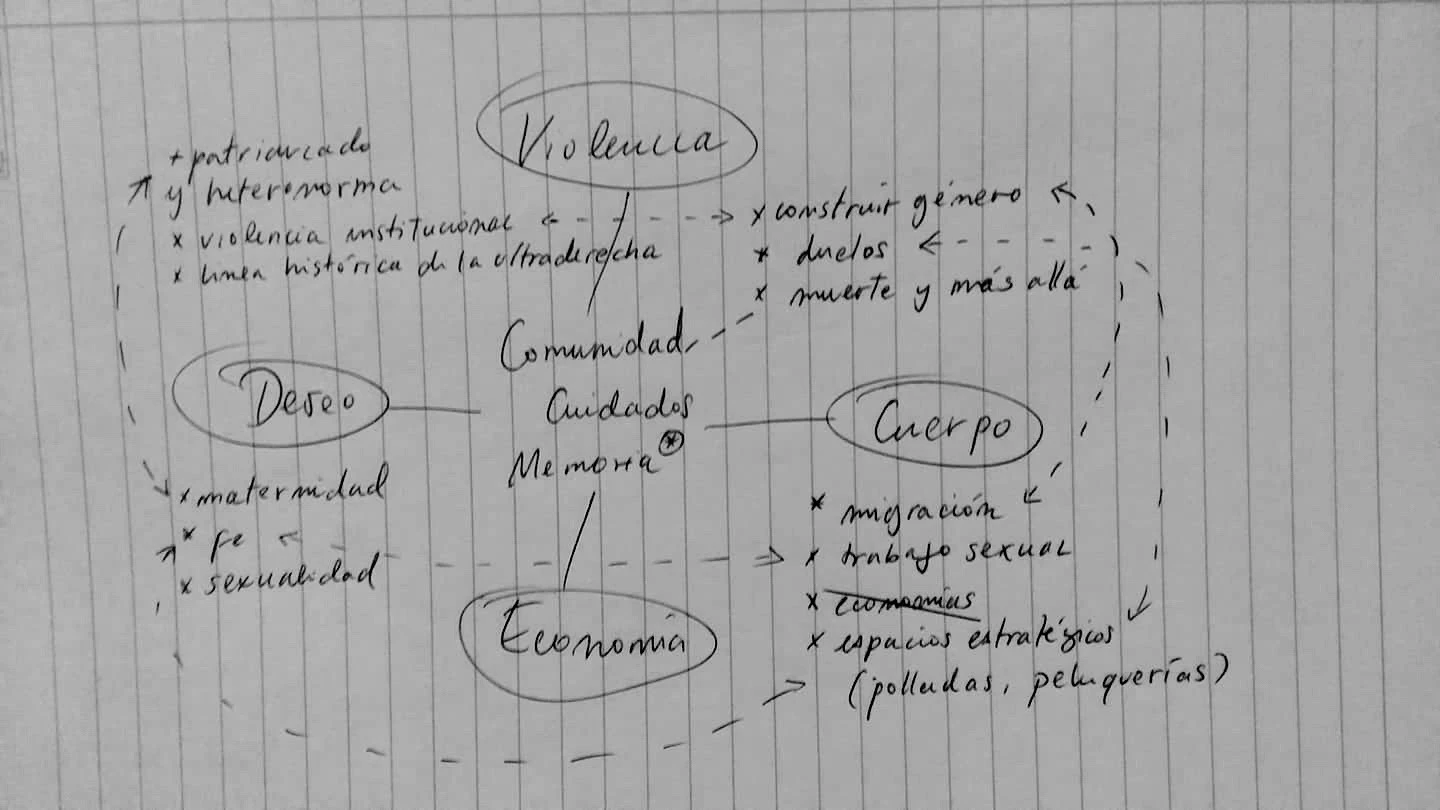 Violencia
+ patriarcado
y heteronorma
x violencia institucional
x línea histórica de la ultraderecha
x construir género
x duelos
x muerte y más allá
Comunidad
Cuidados
Memoria *
Deseo
Cuerpo
x maternidad
x fe
x sexualidad
x migración
x trabajo sexual
x economías
x espacios estratégicos
(polladas, peluquerías)
Economía